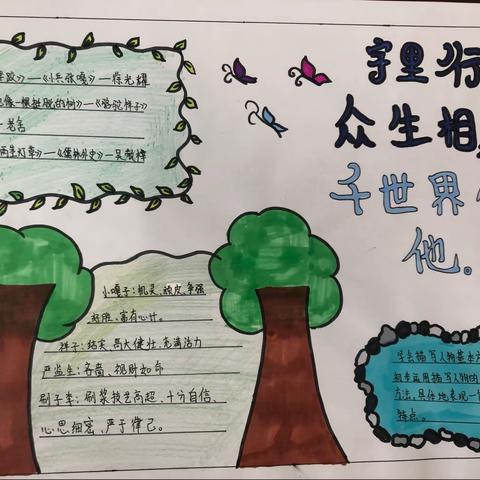 字里行
众生相
千世界
他。
》——《小兵张嘎》——徐光耀
像一棵挺脱的树》——《骆驼祥子》
——老舍
两茎灯草》——《儒林外史》——吴敬梓
小嘎子：机灵、顽皮、争强
好胜、富有心计。
祥子：结实、高大健壮、充满活力
严监生：吝啬、视财如命
刷子李：刷浆技艺高超、十分自信、
心思细密、严于律己。
学会描写人物基本方
初步运用描写人物的
方法，具体地表现一
特点。